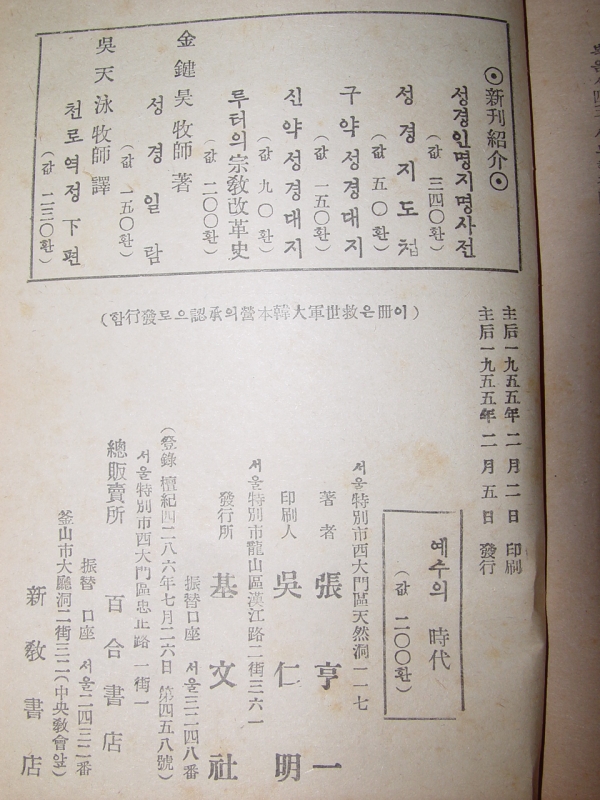 ⊙新刊紹介⊙
성경인명지명사전
(값 三四〇환)
성경지도첩
(값 五〇환)
구약성경대지
(값 一五〇환)
신약성경대지
(값 九〇환)
루터의宗敎改革史
(값 二〇〇환)
金鍵昊牧師著
성경일람
(값 一五〇환)
吳天泳牧師譯
천로역정下편
(값 二三〇환)
(이冊은救世軍大韓本營의承認으로發行함)
主后一九五五年 二月二日 印刷
主后一九五五年 二月五日 發行
예수의 時代
(값 二〇〇환)
서울特別市西大門區天然洞一一七
著者 張亨一
印刷人 吳仁明
서울特別市龍山區漢江路二街三六一
發行所 基文社
振替口座 서울三二四八番
(登錄 檀紀四二八六年七月二六日 第四五八號)
서울特別市西大門區忠正路一街一
總販賣所 百合書店
振替口座 서울二四三二番
釜山市大廳洞二街三二(中央敎會앞)
新敎書店